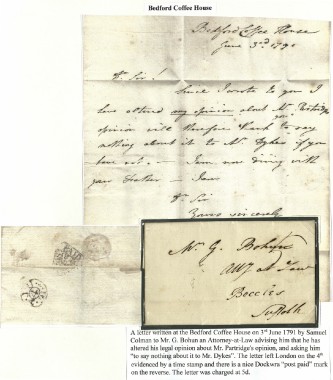 Bedford Coffee House
Bedford Coffee House
June 3rd 179
Dr Sir!
Since I wrote to you I
have altered my opinion about Mr Partridge's
opinion will therefore thank you to say
nothing about it to Mr Dykes if you
have not. — I am now dining with
your Father — I am
Dr Sir
Yours sincerely
Mr G. Bohun
Atty at Law
Beccles
Suffolk
A letter written at the Bedford Coffee House on 3rd June 1791 by Samuel
Colman to Mr. G. Bohun an Attorney-at-Law advising him that he has
altered his legal opinion about Mr. Partridge's opinion, and asking him
"to say nothing about it to Mr. Dykes". The letter left London on the 4th
evidenced by a time stamp and there is a nice Dockwra "post paid" mark
on the reverse. The letter was charged at 5d.